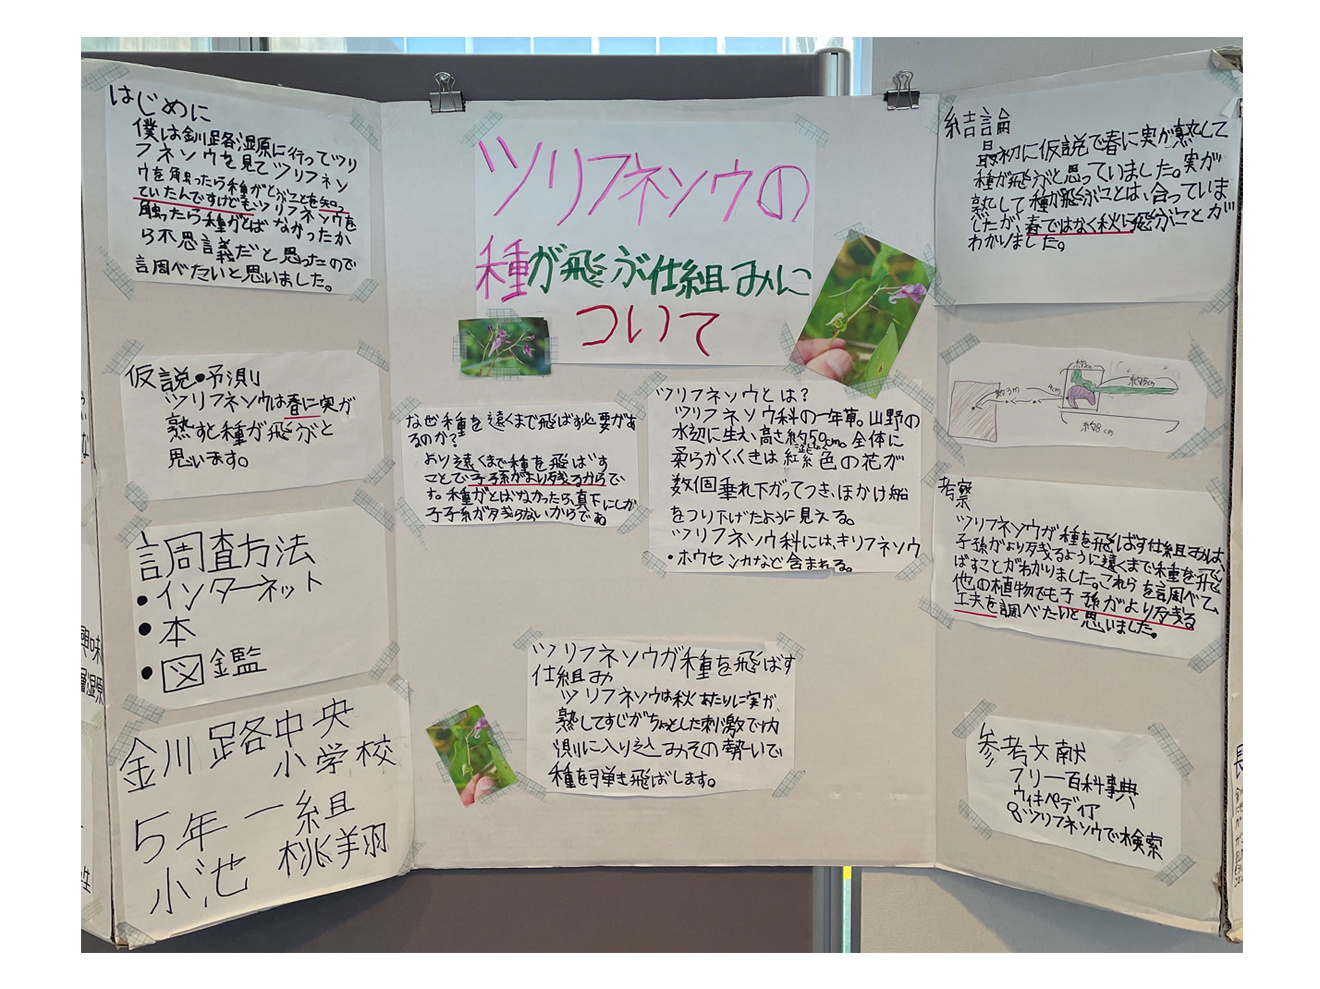 はじめに
僕は釧路湿原に行ってツリ
フネソウを見てツリフネソ
ウを角虫ったら種がとぶことを知っ
ていたんですけどもツリフネソウを
触ったら種がとばなかったか
ら不思議だと思ったので
調べたいと思いました。
仮説・予測
ツリフネソウは春に実が
熟すと種が飛ぶと
思います。
調査方法
・インターネット
・本
・図鑑
釧路中央
小学校
5年一組
小池 桃翔
ツリフネソウの
種が飛ぶ仕組みに
ついて
なぜ種を遠くまで飛ばす必要があ
るのか?
より遠くまで種を飛ばす
ことで子孫がより残るからで
す。種がとばなかったら、真下にしか
子孫が残らないからでね
ツリフネソウとは?
ツリフネソウ科の一年草。山野の
水辺に生え、高さ約50cm。全体に
柔らかく、くきは紅紫色の花が
数個垂れ下がってつき、ほかけ船
をつり下げたように見える。
ツリフネソウ科には、キリフネソウ
・ホウセンカなど含まれる。
ツリフネソウが種を飛ばす
仕組み
ツリフネソウは秋あたりに実が、
熟してすじがちょっとした刺激で内
測に入り込みその勢いで
種を弾き飛ばします。
結論
最初に仮説で春に実が熟して
種が飛ぶと思っていました。実が
熟して種が飛ぶことは、合っていま
したが、春ではなく秋に飛ぶことが
わかりました。
約3m
約8cm
考察
ツリフネソウが種を飛ばす仕組みは、
子孫がより残るように遠くまで種を飛
ばすことがわかりました。これらを調べて、
他の植物でも子孫がより残る
工夫を調べたいと思いました。
参考文献
フリー百科事典
ウィキペディア
8ツリフネソウで検索